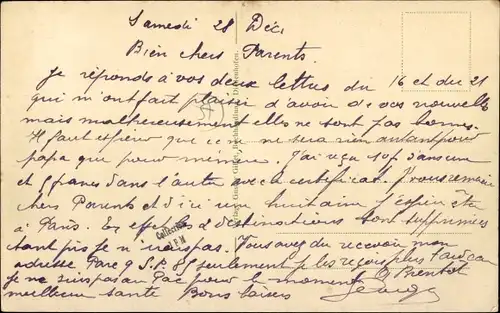 Samedi 28 Déc
Bien chers Parents.
Je réponds à vos deux lettres du 16 et du 21
qui m'ont fait plaisir d'avoir de vos nouvelles
mais malheureusement elles ne sont pas bonnes.
Il faut espérer que ce ne sera rien autant pour
papa que pour mémère. J'ai reçu 10f dans une
et 5 francs dans l'autre avec le certificat. Je vous remercie
chers Parents et d'ici une huitaine j'espère être
à Paris. En effet les 2 destinations sont supprimées
tant pis je n'irai pas. Vous avez du recevoir mon
adresse Parc 9 S.P. seulement je les reçois plus tard car
je ne suis pas au Parc pour le moment
meilleure santé Bons baisers
Collection